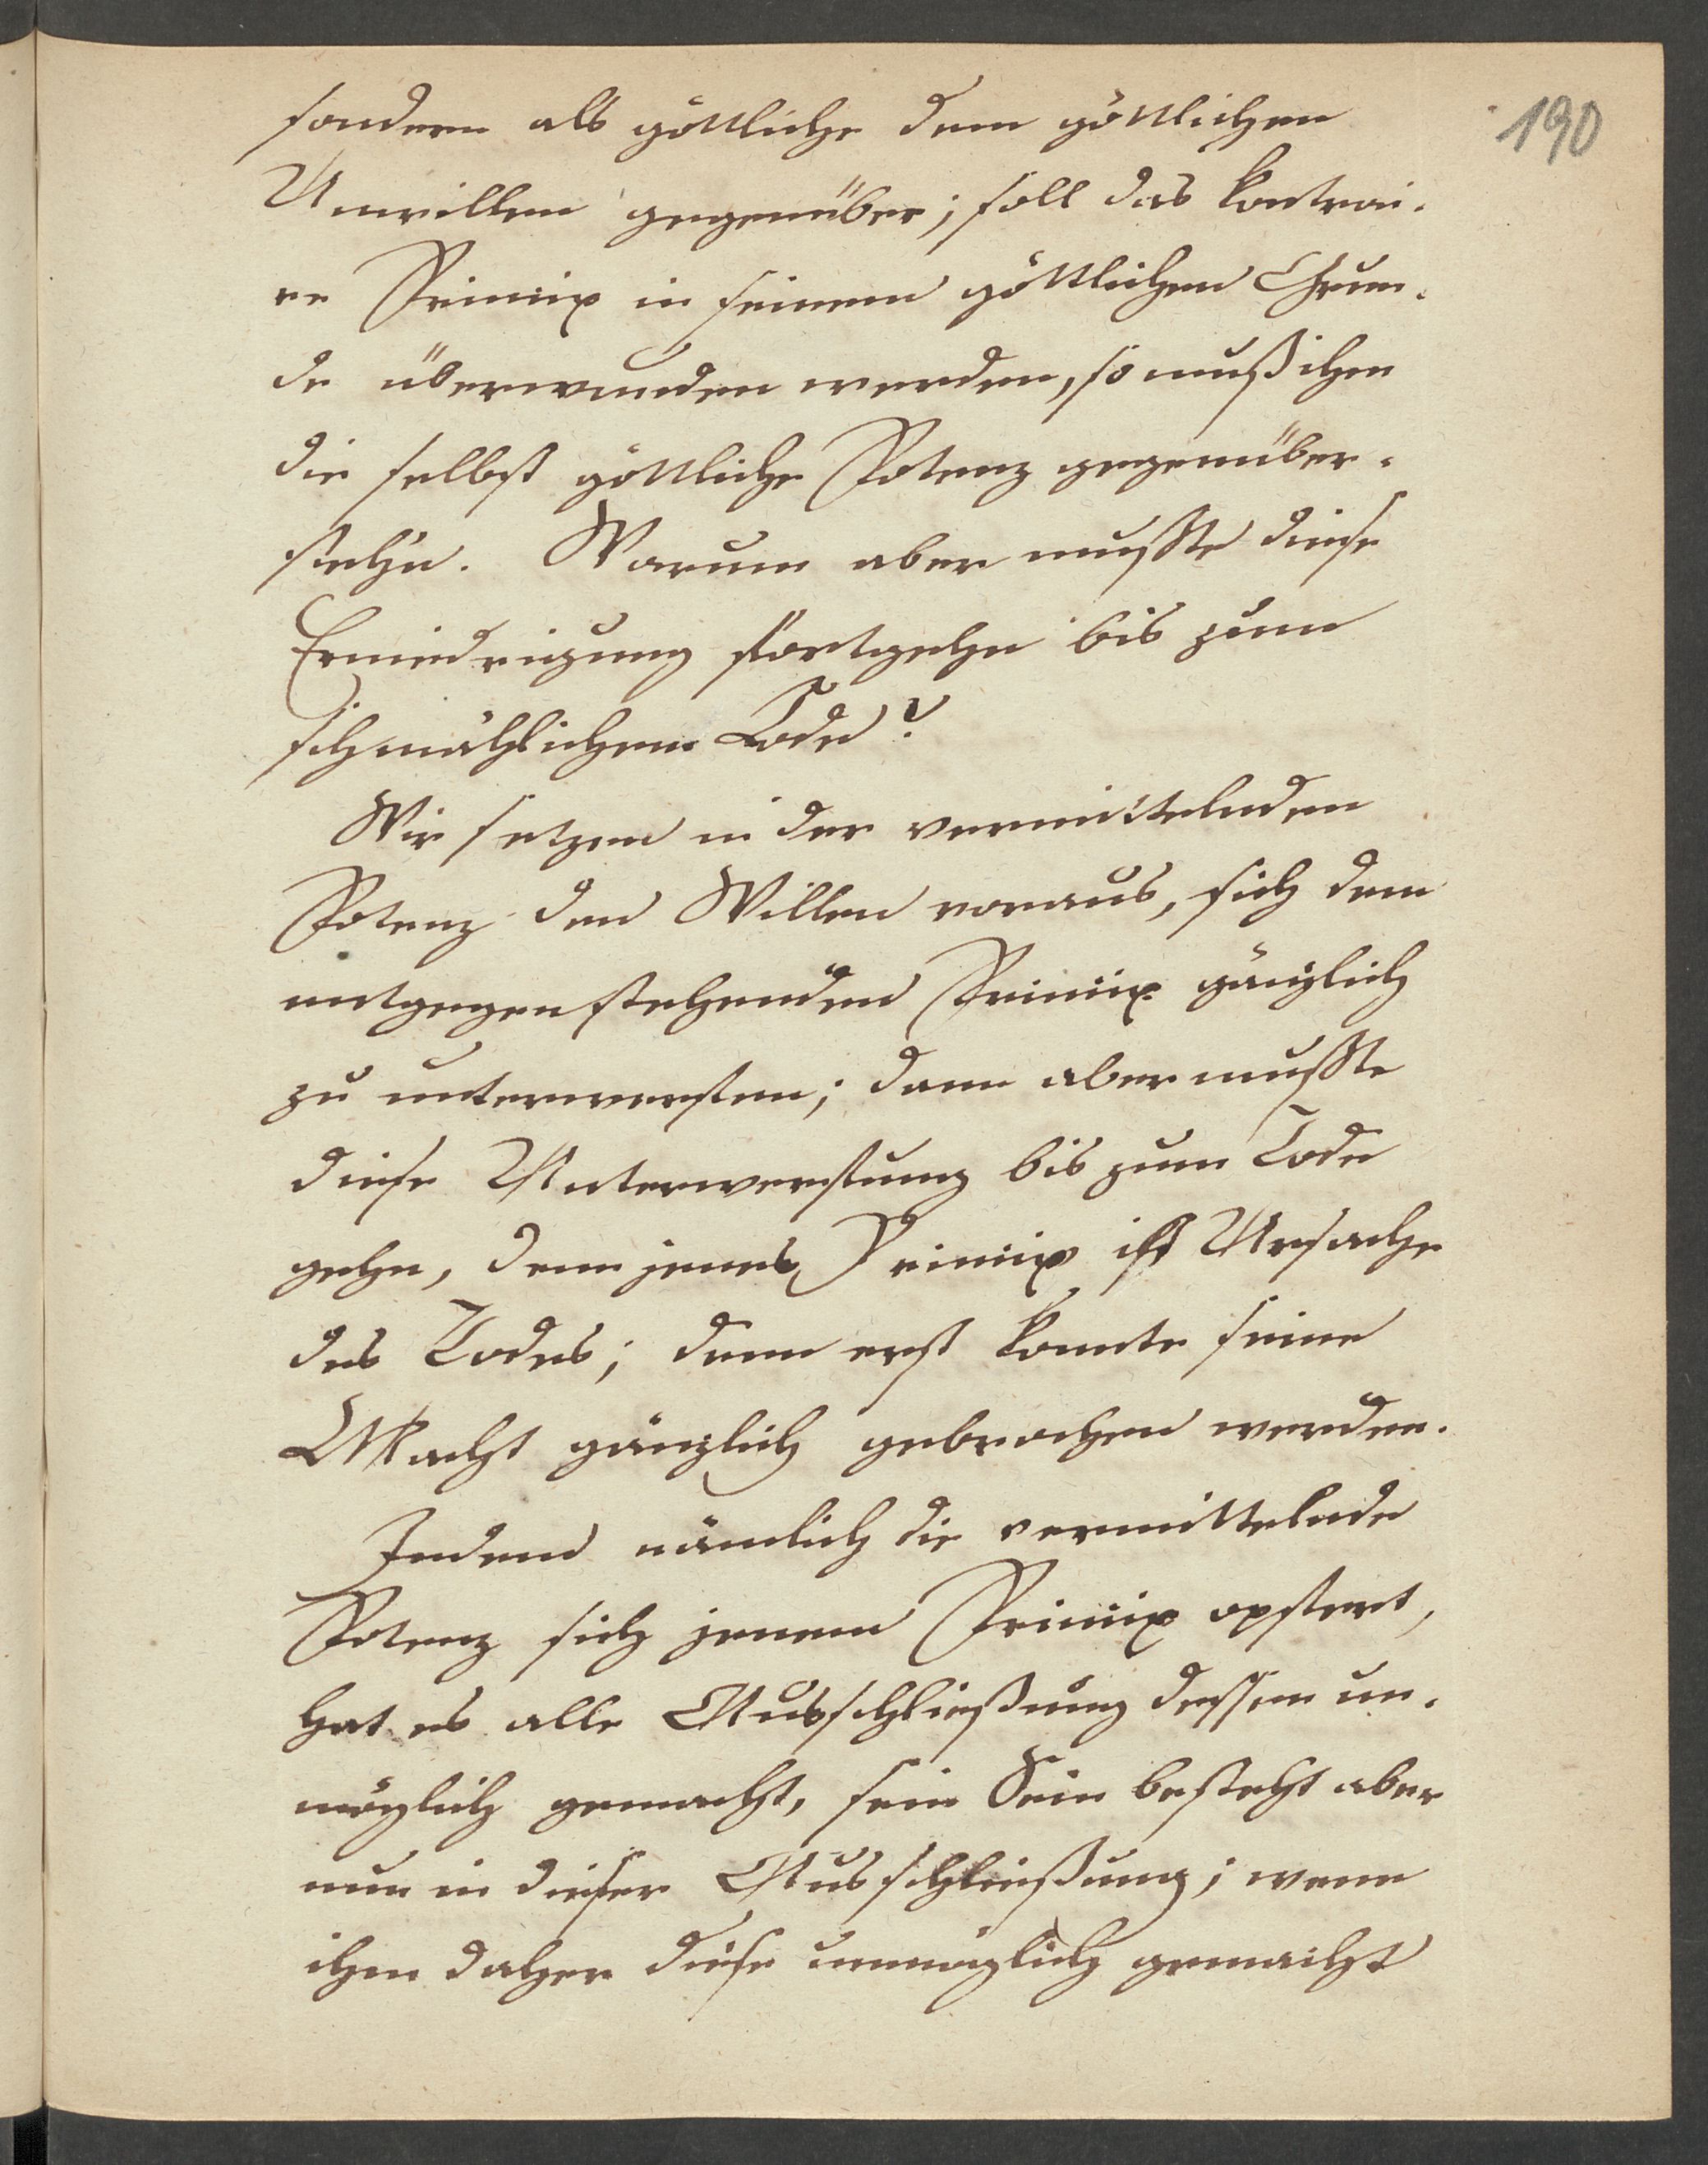 190
sondern als göttliche dem göttlichen
Unwillen gegenüber; soll das kontrai-
re Prinzip in seinem göttlichen Grun-
de überwunden werden, so muß ihm
die selbst göttliche Potenz gegenüber-
stehn. Warum aber mußte diese
Erniedrigung fortgehn bis zum
schmählichen Tode?
Wir setzen in der vermittelnden
Potenz den Willen voraus, sich dem
entgegenstehenden Prinzip gänzlich
zu unterwerfen; dann aber mußte
diese Unterwerfung bis zum Tode
gehn, denn jenes Prinzip ist Ursache
des Todes; denn erst konnte seine
Macht gänzlich gebrochen werden.
Indem nämlich die vermittelnde
Potenz sich jenem Prinzip opfert,
hat es alle Ausschließung dessen un-
möglich gemacht, sein Sein besteht aber
nur in dieser Ausschließung; wenn
ihm daher diese unmöglich gemacht